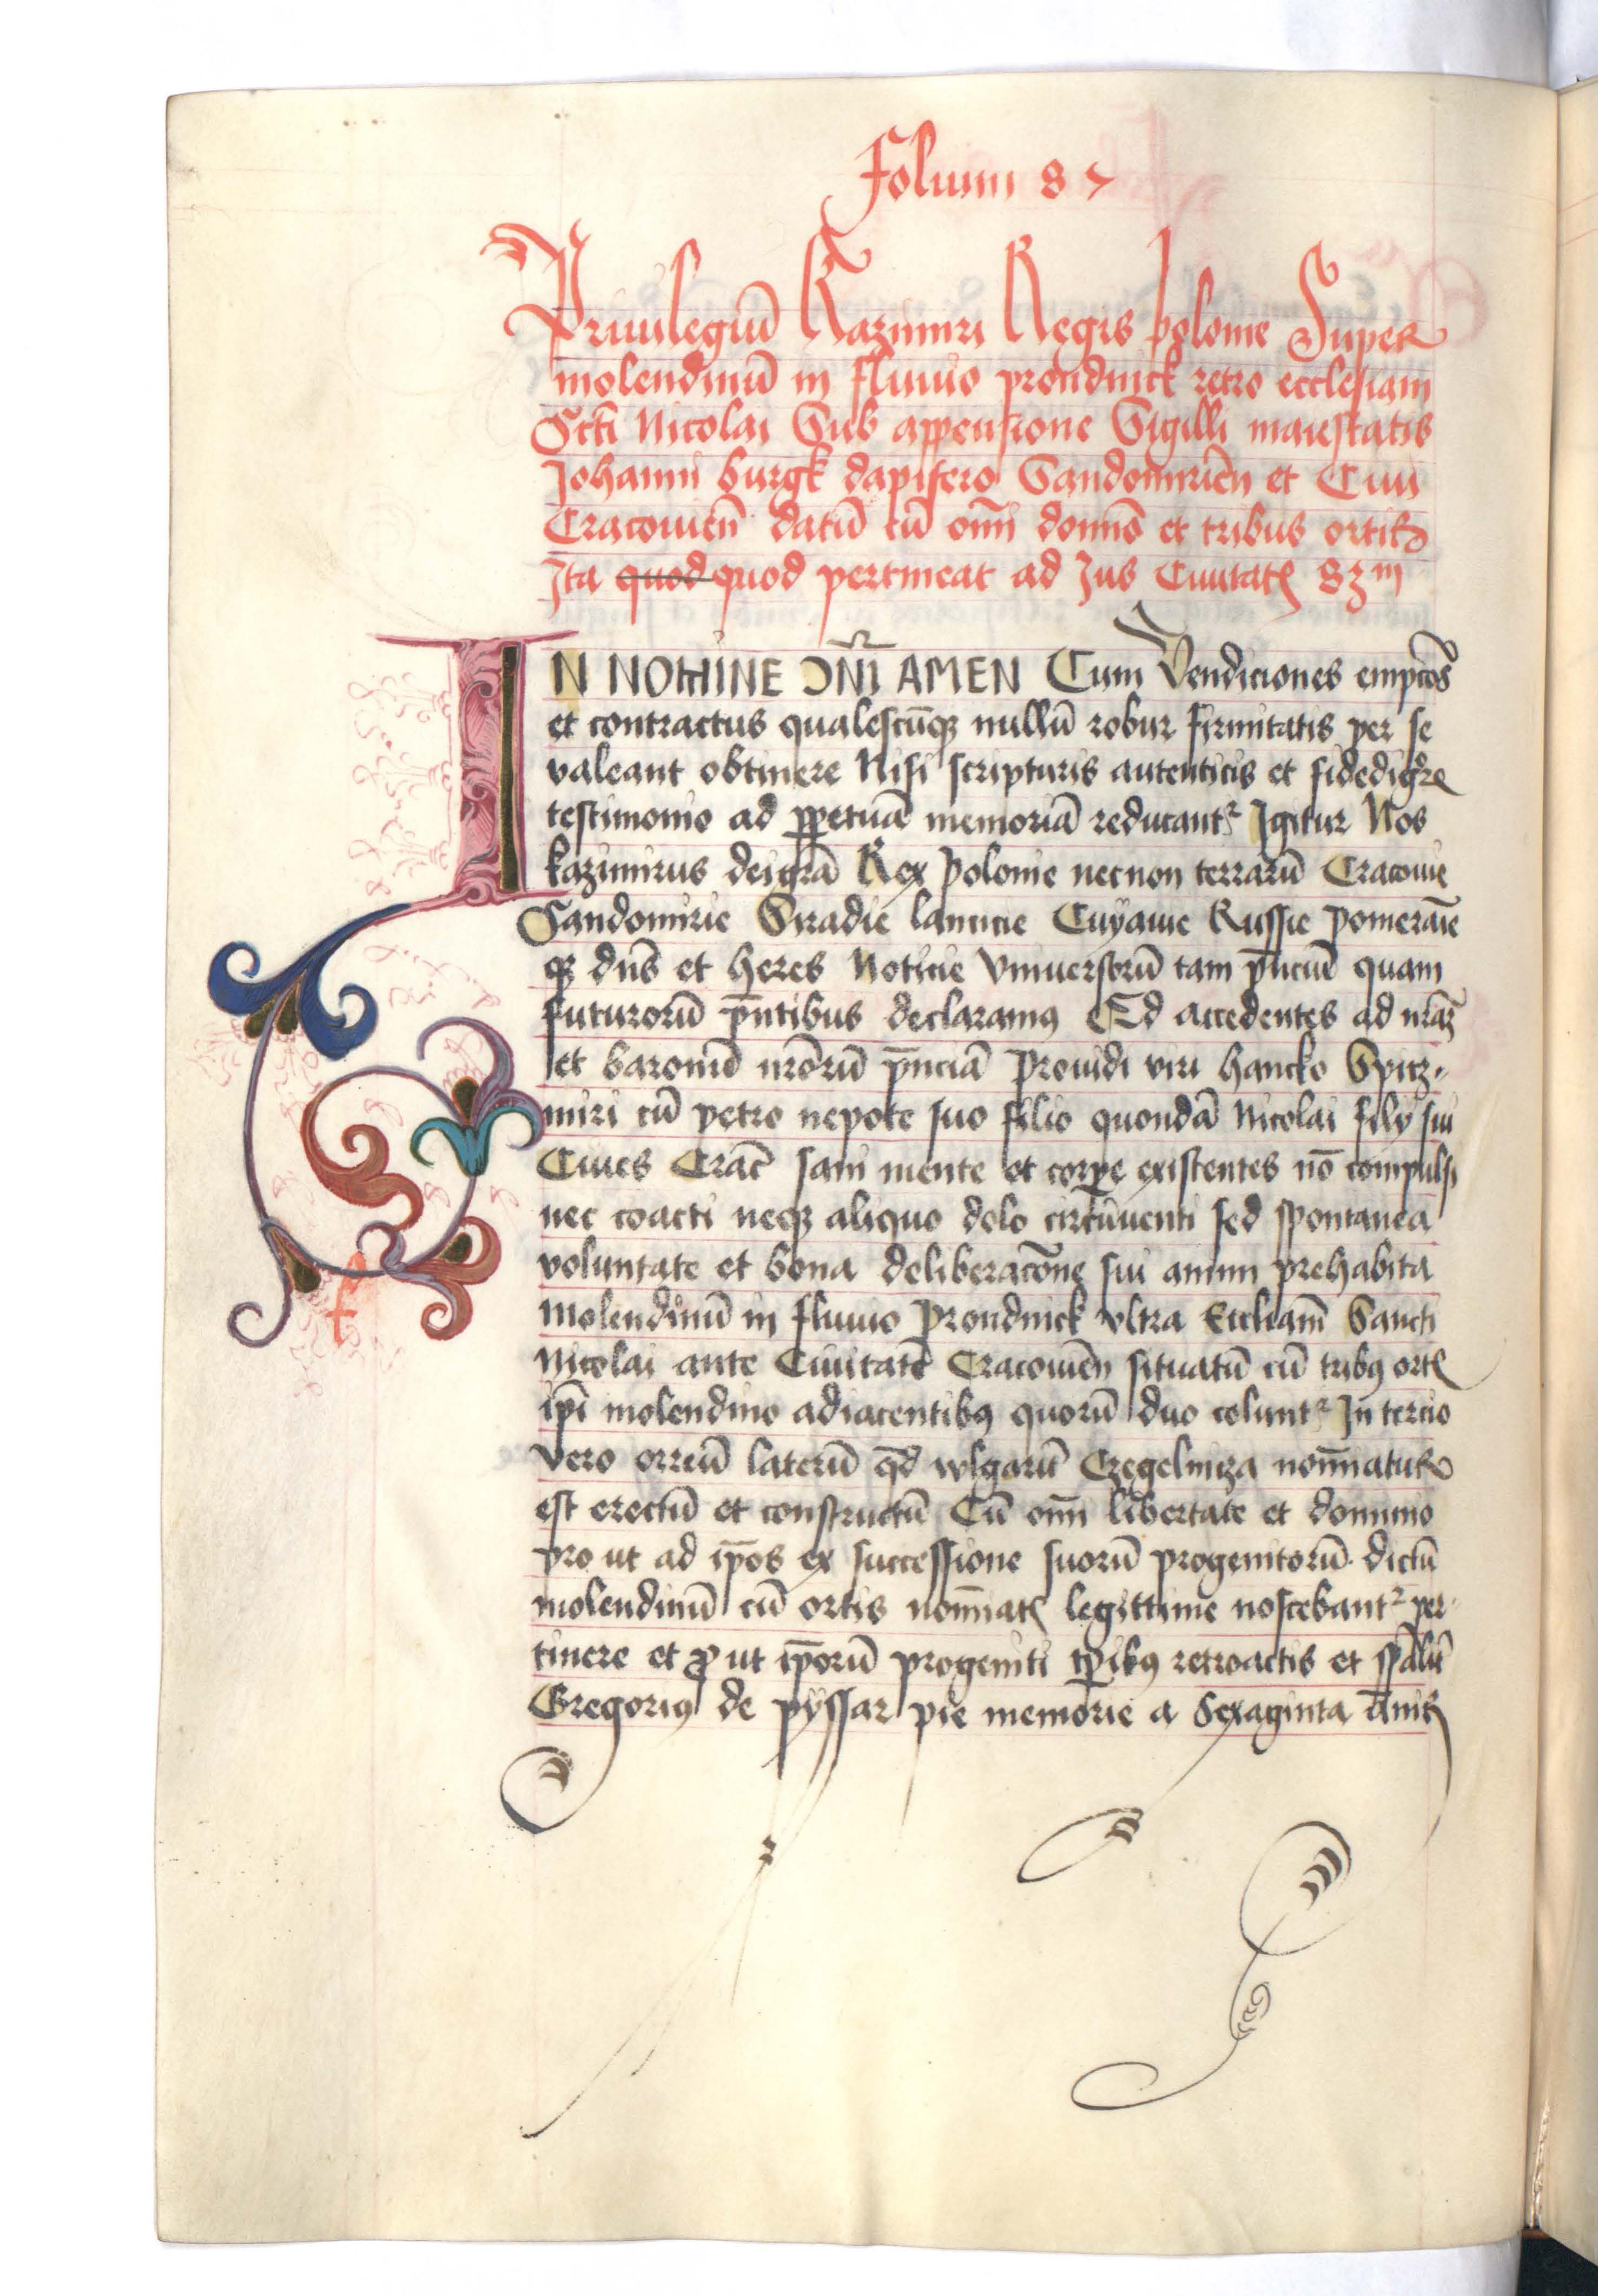 Folium 87
Priuilegiū Kazimiri Regis polonie Super
molendinū in fluuio prondnick retro ecclesiam
Scti Nicolai Sub appensione Sigilli maiestatis
Johanni burgk dapifero Sandomirien̄ et Ciui
Cracouien̄ datū cū om̄i domīo et tribus ortis
Ita quod quod pertineat ad Jus Ciuitatꝭ 83m
IN NOMINE DN̄I AMEN Cum Vendiciones empcōes
et contractus qualescūqꝫ nullū robur firmitatis per se
valeant obtinere Nisi scripturis autenticis et fidedig
testimonio ad ꝑpetuā memoriā reducantʳ Igitur Nos
kazimirus dei grā Rex polonie necnon terrarū Cracouie
Sandomirie Siradie lancicie Cuÿauie Russie pomeraīe
qꝫ dn̄s et heres Noticie Vniuersorū tam pn̄ciū quam
futurorū pn̄tibus declaramꝯ Qd accedentes ad nr̄aꝫ
et baronū nr̄orū pn̄ciā prouidi viri hancko Spicz
miri cū petro nepote suo filio quondā Nicolai filÿ sui
Ciues Crac̄ sani mente et corꝑe existentes nō compulsi
nec coacti necꝫ aliquo dolo circūuenti sed spontanea
voluntate et bona deliberacōne sui animi prehabita
Molendinū in fluuio prondnick vltra Eccleīam Sancti
Nicolai ante Ciuitatē Cracouien̄ situatū cū tribꝯ ortꝭ
ip̄i molendino adiacentibꝯ quorū duo coluntʳ In tercio
vero orreū laterū qd̄ wlgarīt Czegelnicza nom̄inatur
est erectū et constructū Cū om̄i libertate et dominio
pro ut ad ip̄os ex successione suorū progenitorū dictū
molendinū cū ortis nom̄iatꝭ legittime noscebantʳ per
tinere et ꝓ ut ip̄orū progeniti tꝑibꝯ retroactis et spāliī
Gregoriꝯ de pÿssar pie memorie a Sexaginta an̄is